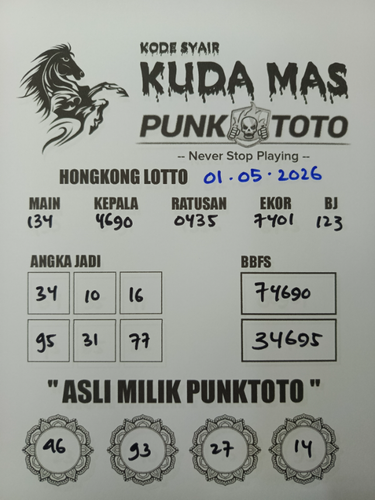 KODE SYAIR
KUDA MAS
PUNK TOTO
-- Never Stop Playing --
HONGKONG LOTTO 01-05-2026
MAIN KEPALA RATUSAN EKOR BJ
134 4690 0435 7401 123
ANGKA JADI BBFS
34 10 16 74690
95 31 77 34695
" ASLI MILIK PUNKTOTO "
46 93 27 14